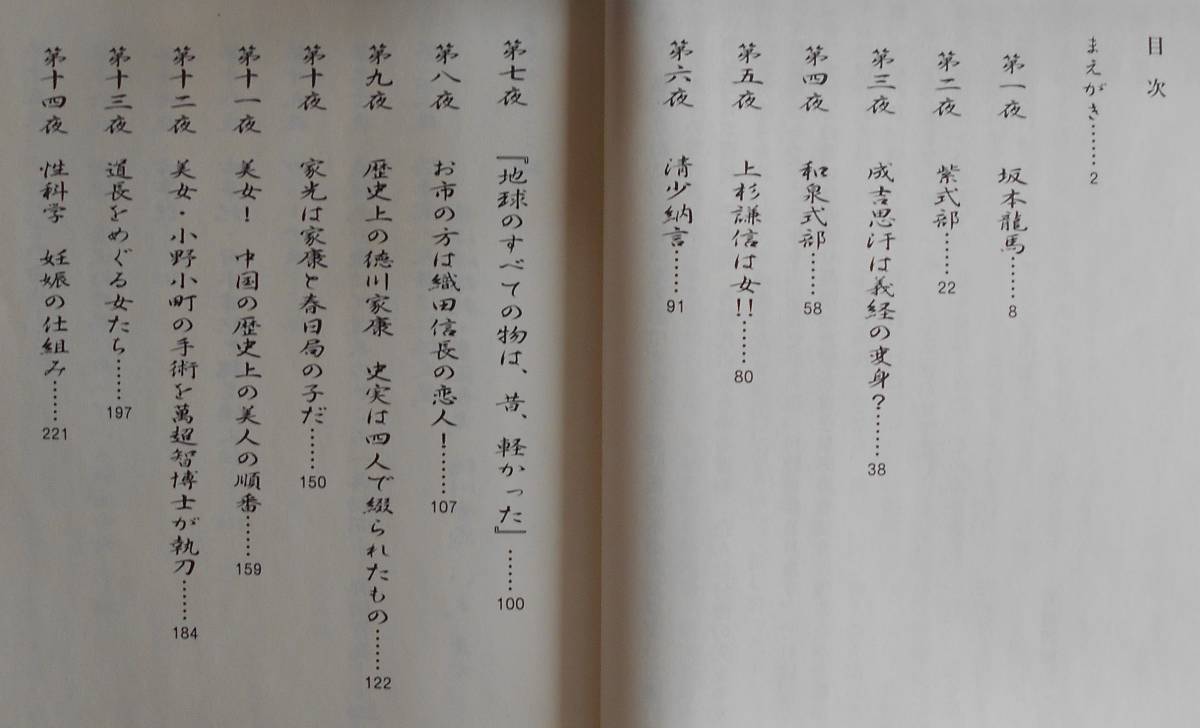 目次
まえがき……2
第一夜 坂本龍馬……8
第二夜 紫式部……22
第三夜 成吉思汗は義経の変身？……38
第四夜 和泉式部……58
第五夜 上杉謙信は女！！……80
第六夜 清少納言……91
第七夜 『地球のすべての物は、昔、軽かった』……100
第八夜 お市の方は織田信長の恋人！……107
第九夜 歴史上の徳川家康 史実は四人で綴られたもの……122
第十夜 家光は家康と春日局の子だ……150
第十一夜 美女！ 中国の歴史上の美人の順番……159
第十二夜 美女・小野小町の手術を萬超智博士が執刀……184
第十三夜 道長をめぐる女たち……197
第十四夜 性科学 妊娠の仕組み……221